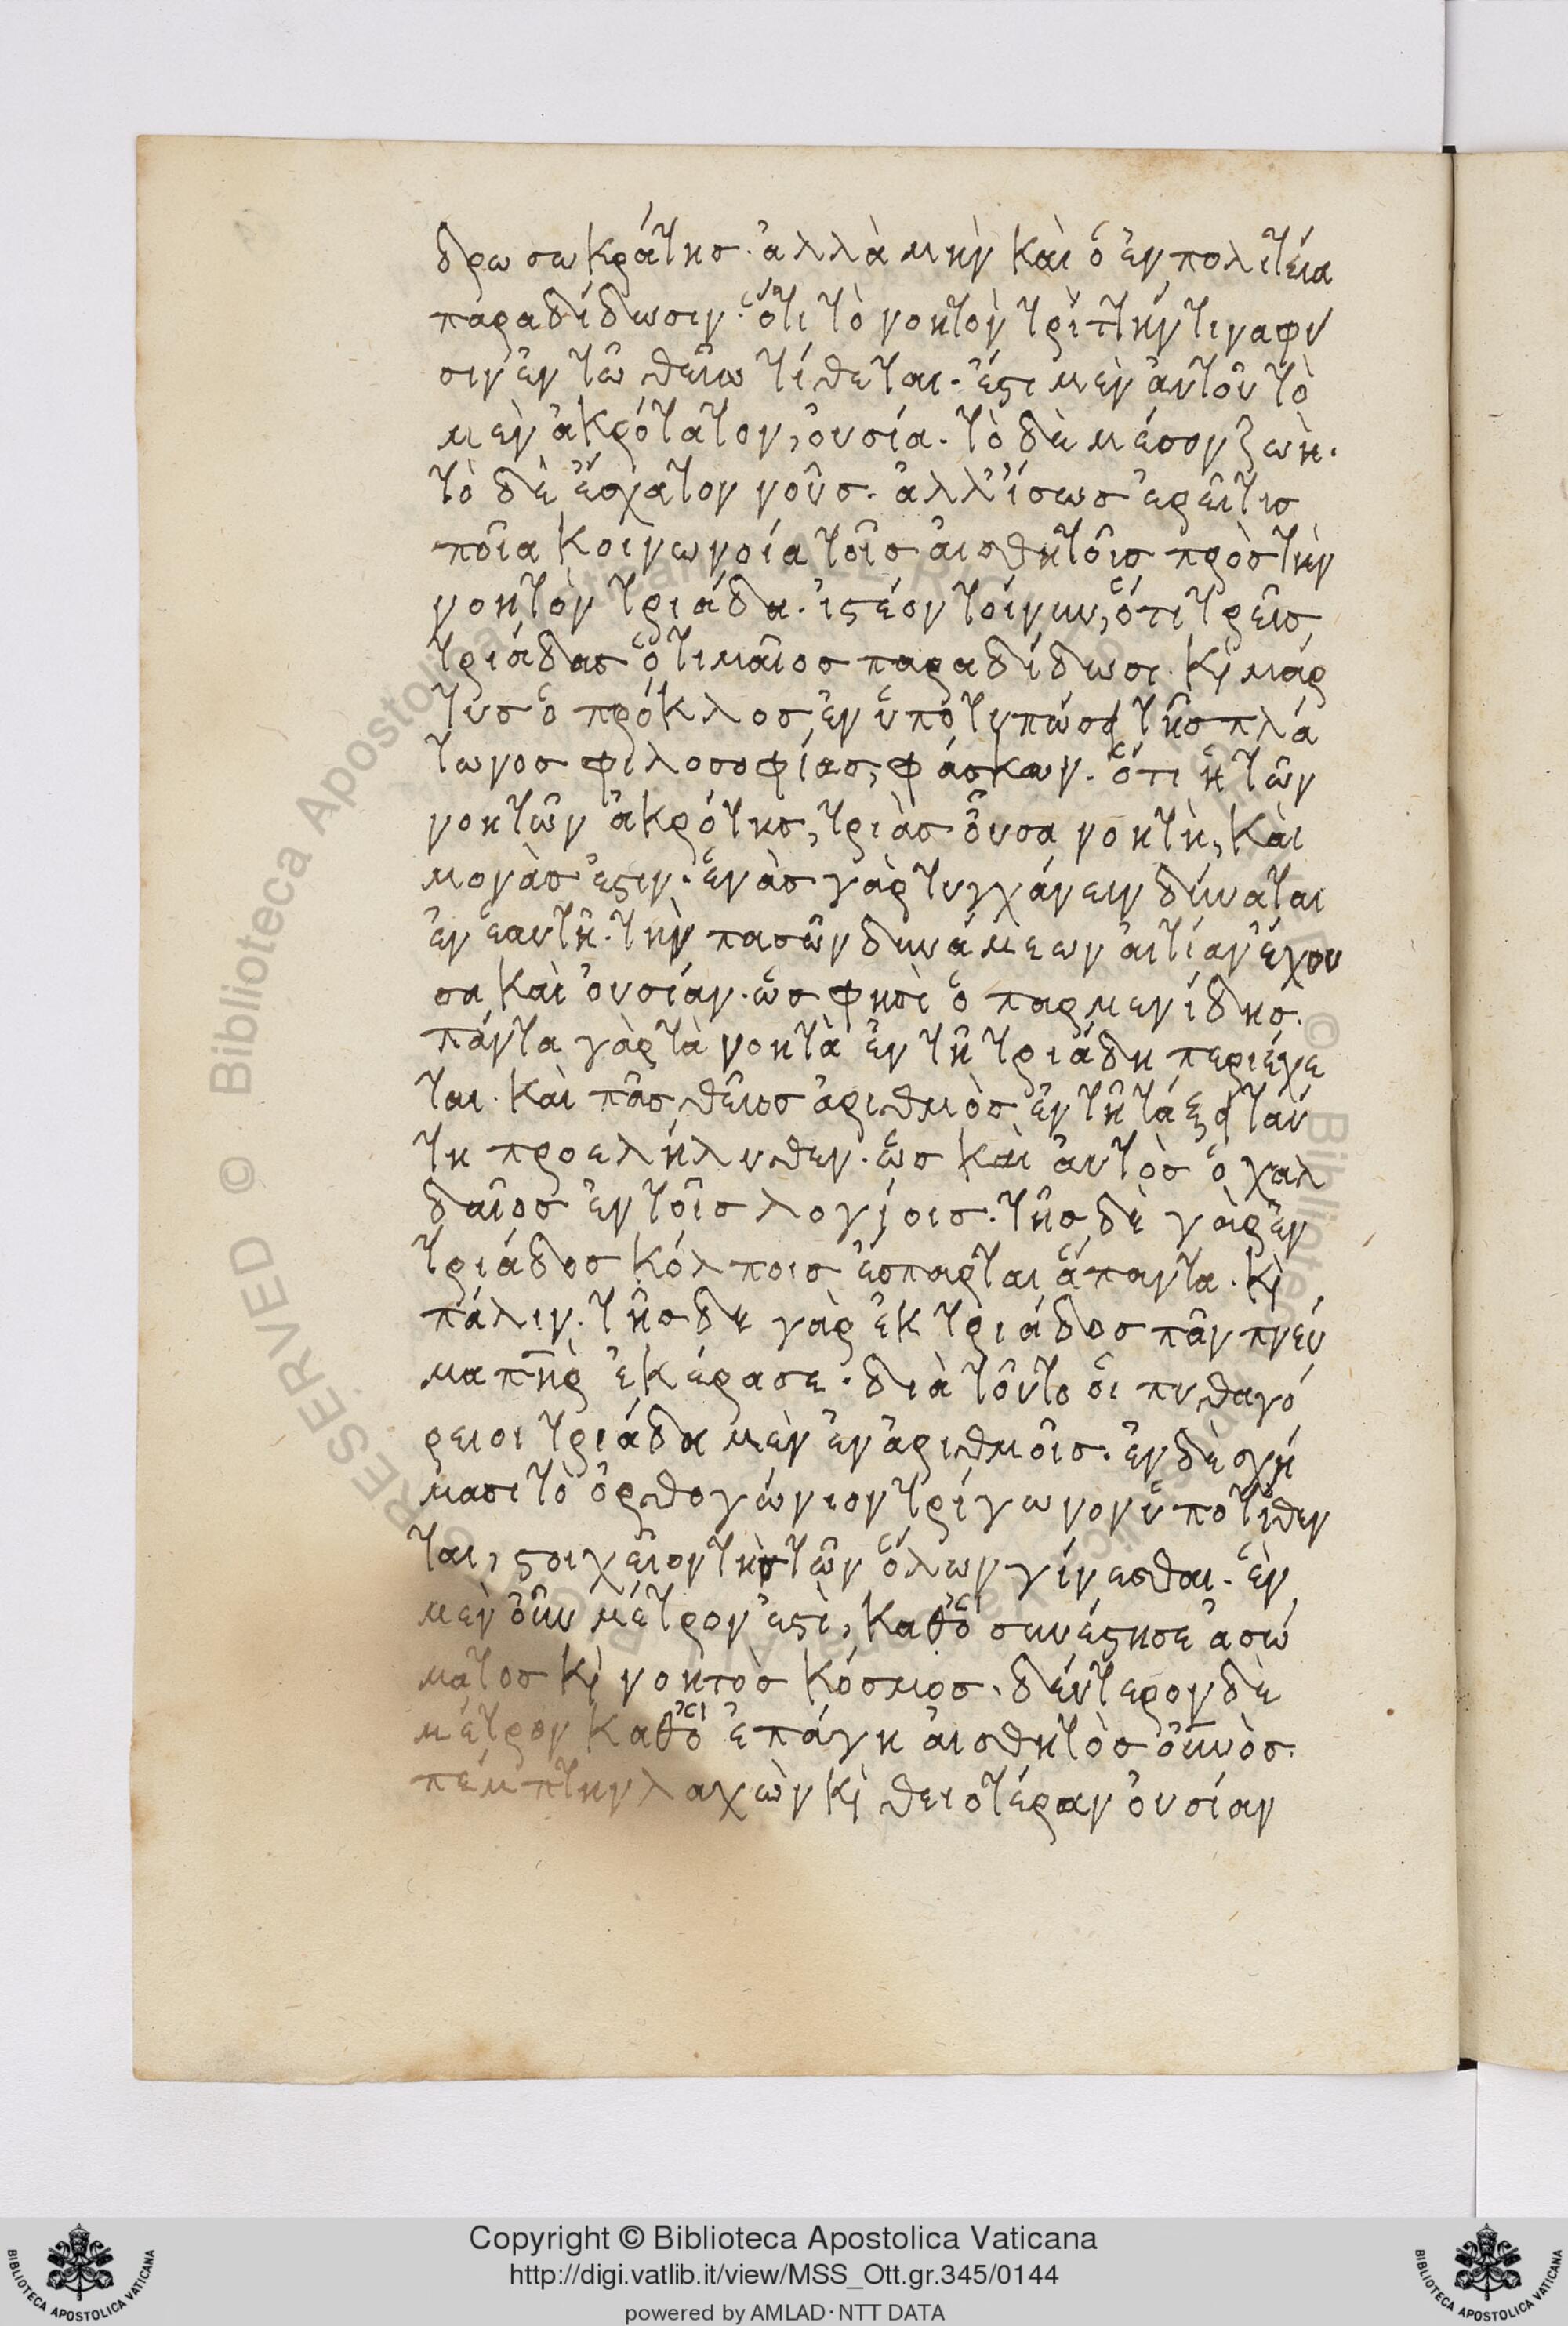 δρω σωκράτης. ἀλλὰ μὴν καὶ ὁ ἐν πολιτεία
παραδίδωσιν. ὅτι τὸ νοητὸν τρίττην τινα φύ
σιν ἐν τῶ θείω τίθεται. ἔστι μὲν αὐτοῦ τὸ
μὲν ἀκρότατον, οὐσία. τὸ δὲ μέσον ζωὴ.
τὸ δὲ ἔσχατον νοῦς. ἀλλ' ἴσως ἐρεῖ τις
ποία κοινωνοία τοῖς αἰσθητοῖς πρὸς τὴν
νοητὸν τριάδα. ἰστέον τοίνυν, ὅτι τρεῖς
τριάδας ὁ τιμαῖος παραδίδωσι. κὶ μάρ
τυς ὁ πρόκλος ἐν ὑποτυπώσει τῆς πλά
τωνος φιλοσοφίας, φάσκων. ὅτι ἡ τῶν
νοητῶν ἀκρότης, τριὰς οὖσα νοητὴ, καὶ
μονὰς ἐστιν. ἑνὰς γὰρ τυγχάνειν δύναται
ἐν ἑαυτῆ. τὴν πασῶν δυνάμεων αἰτίαν ἔχου
σα καὶ οὐσίαν. ὥς φησὶ ὁ παρμενίδης.
πάντα γὰρ τὰ νοητὰ ἐν τῆ τριάδη περιέχε
ται. καὶ πᾶς θεῖος ἀριθμὸς ἐν τῆ τάξει ταύ
τη προελήλυθεν. ὡς καὶ αὐτὸς ὁ χαλ
δαῖος ἐν τοῖς λογίοις. τῆς δὲ γὰρ ἐν
τριάδος κόλποις ἔσπαρται ἅπαντα. κὶ
πάλιν. τῆσδε γὰρ ἐκ τριάδος πᾶν πνεύ
μα πηρ ἐκέρασε. διὰ τοῦτο οἱ πυθαγό
ρειοι τριάδα μὲν ἐν ἀριθμοῖς. ἐν δὲ σχή
μασι τὸ ὀρθογώνιον τρίγωνον ὑποτίθεν
ται, στοιχεῖον τῆς τῶν ὅλων γίνεσθαι. ἓν
μὲν οὖν μέτρον ἐστὶ, καθὃ συνέστησε ἀσώ
ματος κὶ νοητὸς κόσμος. δεύτερον δὲ
μέτρον καθὃ ἐπάγη αἰσθητὸς οὐνὸς.
πέμπτην λαχὼν κὶ θειοτέραν οὐσίαν
Copyright © Biblioteca Apostolica Vaticana
http://digi.vatlib.it/view/MSS_Ott.gr.345/0144
powered by AMLAD·NTT DATA